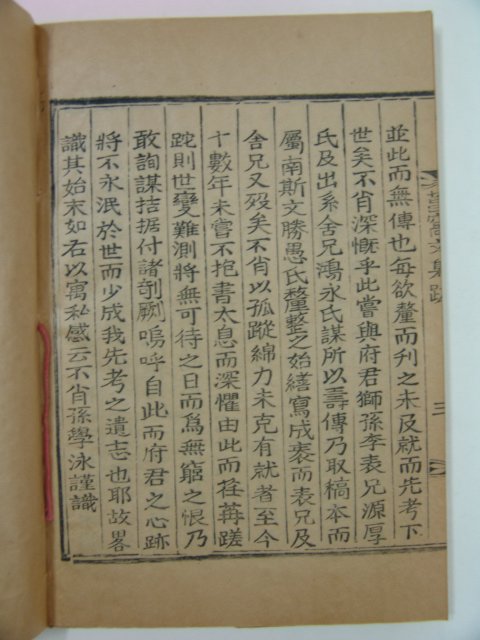 並此而無傳也每欲釐而刊之未及就而先考下
世矣不肖深慨乎此嘗與府君獅孫李袁兄源厚
氏及出系舍兄鴻永氏謀所以壽傳乃取稿本而
屬南斯文勝愚氏釐整之始繕寫成袠而袁兄及
舍兄又歿矣不肖以孤蹤綿力未克有就者至今
十數年未嘗不抱書太息而深懼由此而荏苒蹉
跎則世變難測將無可待之日而爲無窮之恨乃
敢詢謀拮据付諸剞劂嗚呼自此而府君之心跡
將不永泯於世而少成我先考之遺志也耶故畧
識其始末如右以寓私感云不肖孫學泳謹識
文集 跋
三